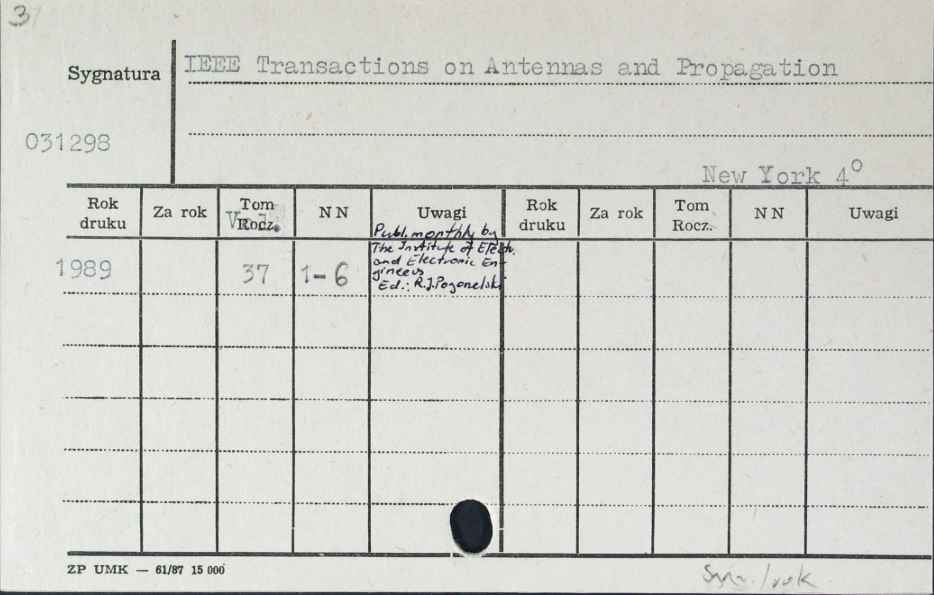 3
Sygnatura
IEEE Transactions on Antennas and Propagation
031298
New York 4°
Rok druku Za rok Tom Rocz. Vol. NN Uwagi Rok druku Za rok Tom Rocz. NN Uwagi
Publ. monthly by
The Institute of Electr.
and Electronic En-
gineers
Ed.: R.J.Pogorzelski
1989 37 1-6
ZP UMK — 61/87 15 000
Sygn. / rok